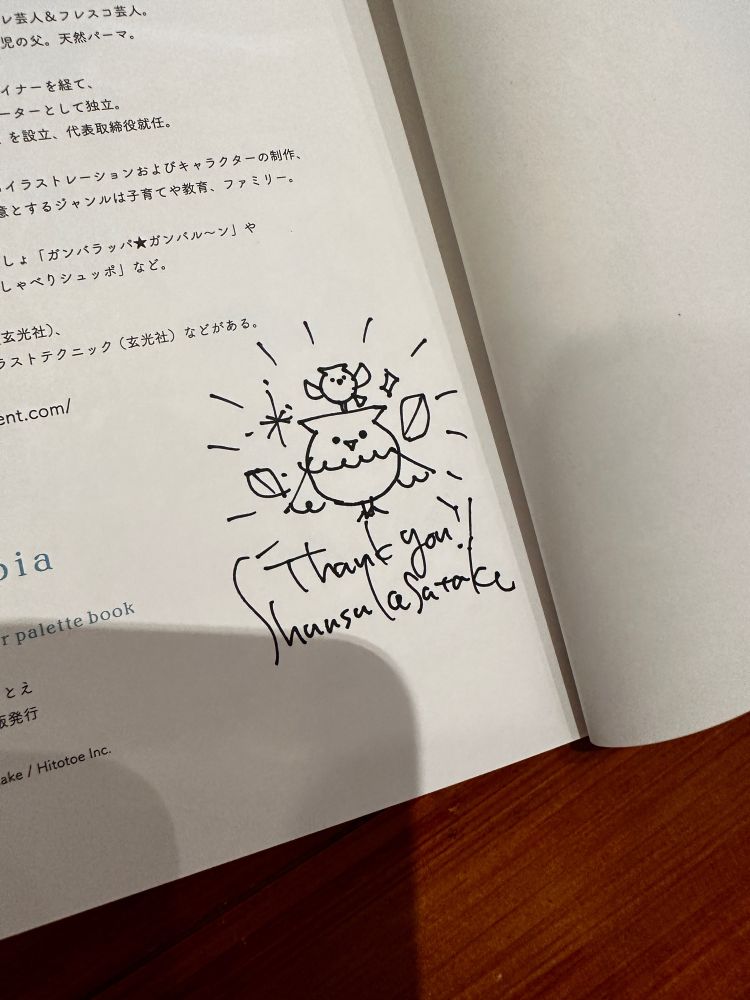 レ芸人＆フレスコ芸人。
児の父。天然パーマ。
イナーを経て、
ーターとして独立。
を設立、代表取締役就任。
イラストレーションおよびキャラクターの制作、
意とするジャンルは子育てや教育、ファミリー。
しょ「ガンバラッパ★ガンバル〜ン」や
しゃべりシュッポ」など。
玄光社）、
ラストテクニック（玄光社）などがある。
ent.com/
Thank you!!
Shunsuke Satake
pia
r palette book
とえ
版発行
ake / Hitotoe Inc.